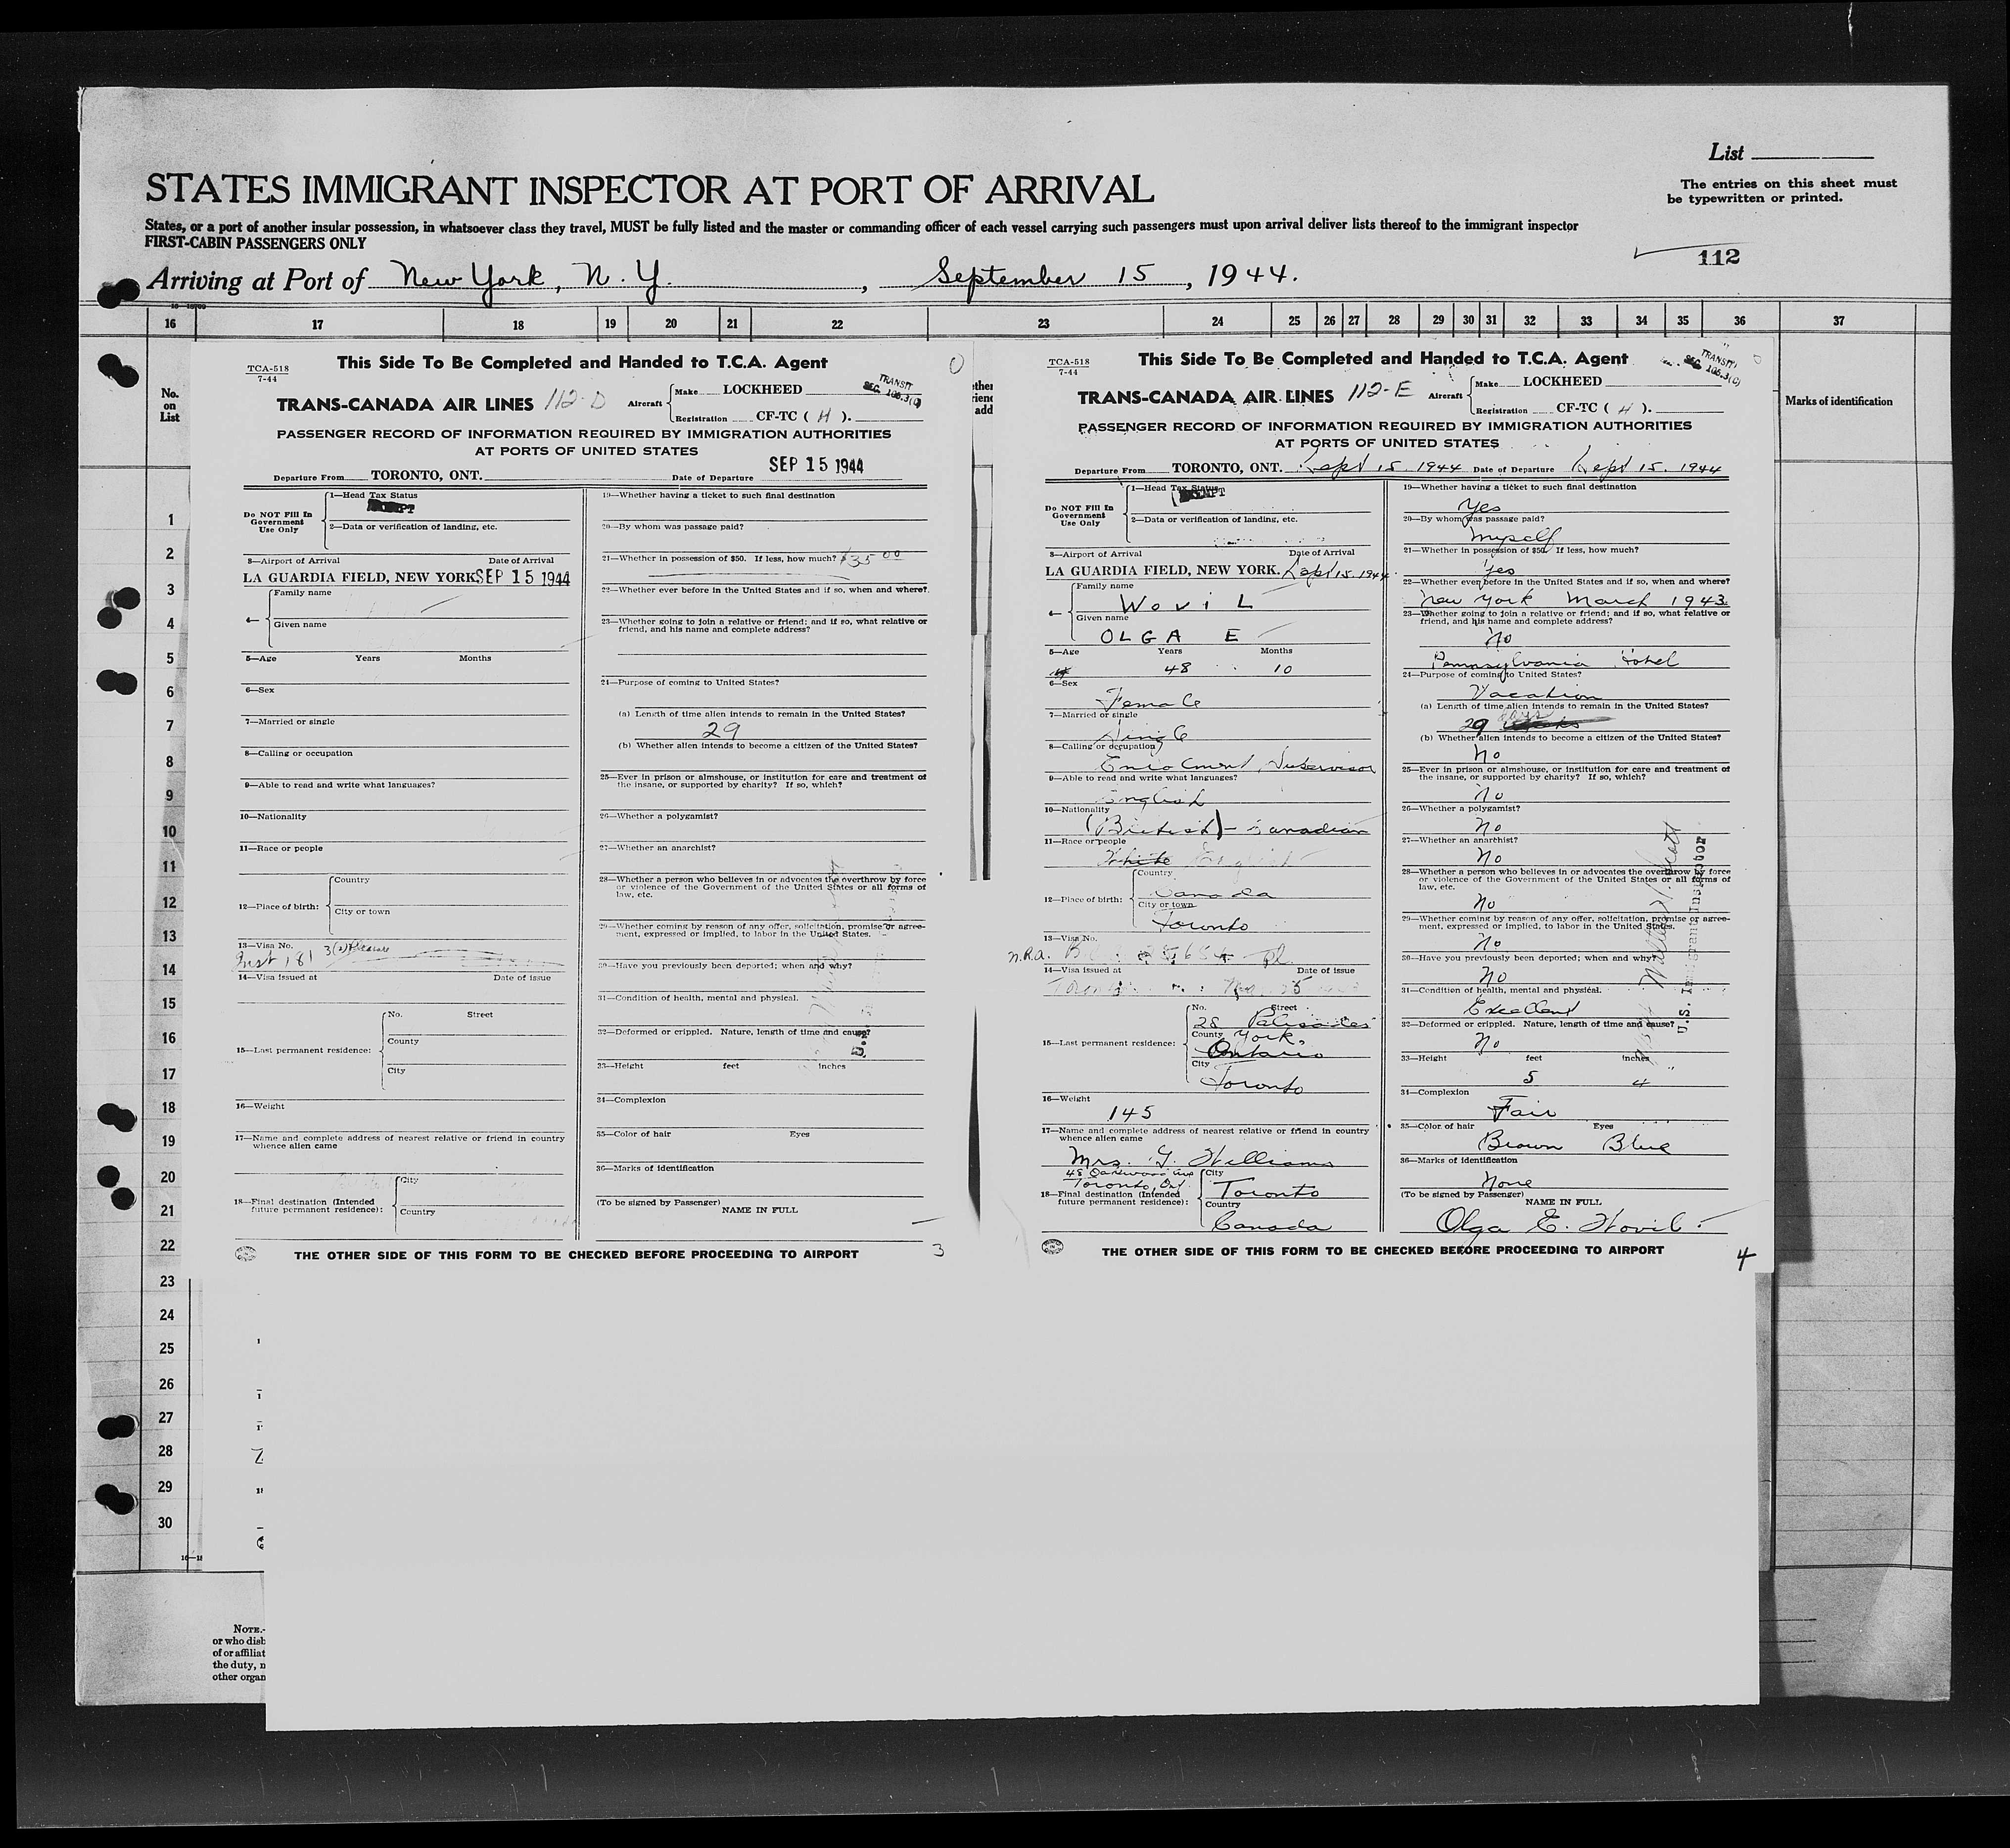 List
STATES IMMIGRANT INSPECTOR AT PORT OF ARRIVAL
The entries on this sheet must
be typewritten or printed.
States, or a port of another insular possession, in whatsoever class they travel, MUST be fully listed and the master or commanding officer of each vessel carrying such passengers must upon arrival deliver lists thereof to the immigrant inspector
FIRST-CABIN PASSENGERS ONLY
112
Arriving at Port of New York, N. Y. , September 15, 1944.
16 17 18 19 20 21 22 23 24 25 26 27 28 29 30 31 32 33 34 35 36 37
No.
on
List
Marks of identification
1
2
3
4
5
6
7
8
9
10
11
12
13
14
15
16
17
18
19
20
21
22
23
24
25
26
27
28
29
30
This Side To Be Completed and Handed to T.C.A. Agent
TCA-518
7-44
TRANSIT
SEC. 106.3(c)
TRANS-CANADA AIR LINES 112-D Aircraft
Make LOCKHEED
Registration CF-TC ( H ).
PASSENGER RECORD OF INFORMATION REQUIRED BY IMMIGRATION AUTHORITIES
AT PORTS OF UNITED STATES
Departure From TORONTO, ONT. Date of Departure SEP 15 1944
Do NOT Fill In
Government
Use Only
1—Head Tax Status
2—Data or verification of landing, etc.
3—Airport of Arrival Date of Arrival
LA GUARDIA FIELD, NEW YORK. SEP 15 1944
4— Family name
Given name
5—Age Years Months
6—Sex
7—Married or single
8—Calling or occupation
9—Able to read and write what languages?
10—Nationality
11—Race or people
12—Place of birth:
Country
City or town
13—Visa No.
Inst 181 3(2) Pleasure
14—Visa issued at Date of issue
15—Last permanent residence:
No. Street
County
City
16—Weight
17—Name and complete address of nearest relative or friend in country
whence alien came
18—Final destination (Intended
future permanent residence):
City
Country
19—Whether having a ticket to such final destination
20—By whom was passage paid?
21—Whether in possession of $50. If less, how much? $35 00
22—Whether ever before in the United States and if so, when and where?
23—Whether going to join a relative or friend; and if so, what relative or
friend, and his name and complete address?
24—Purpose of coming to United States?
(a) Length of time alien intends to remain in the United States?
29
(b) Whether alien intends to become a citizen of the United States?
25—Ever in prison or almshouse, or institution for care and treatment of
the insane, or supported by charity? If so, which?
26—Whether a polygamist?
27—Whether an anarchist?
28—Whether a person who believes in or advocates the overthrow by force
or violence of the Government of the United States or all forms of
law, etc.
29—Whether coming by reason of any offer, solicitation, promise or agree-
ment, expressed or implied, to labor in the United States.
30—Have you previously been deported; when and why?
31—Condition of health, mental and physical.
32—Deformed or crippled. Nature, length of time and cause?
33—Height feet inches
34—Complexion
35—Color of hair Eyes
36—Marks of identification
(To be signed by Passenger)
NAME IN FULL
THE OTHER SIDE OF THIS FORM TO BE CHECKED BEFORE PROCEEDING TO AIRPORT
3
This Side To Be Completed and Handed to T.C.A. Agent
TCA-518
7-44
TRANSIT
SEC. 106.3(c)
TRANS-CANADA AIR LINES 112-E Aircraft
Make LOCKHEED
Registration CF-TC ( H ).
PASSENGER RECORD OF INFORMATION REQUIRED BY IMMIGRATION AUTHORITIES
AT PORTS OF UNITED STATES
Departure From TORONTO, ONT. Sept 15. 1944 Date of Departure Sept 15. 1944
Do NOT Fill In
Government
Use Only
1—Head Tax Status
2—Data or verification of landing, etc.
3—Airport of Arrival Date of Arrival
LA GUARDIA FIELD, NEW YORK. Sept 15. 1944
4— Family name
WoviL
Given name
OLGA E
5—Age Years Months
48 10
6—Sex
Female
7—Married or single
Single
8—Calling or occupation
Enrolment Supervisor
9—Able to read and write what languages?
English
10—Nationality
(British) - Canadian
11—Race or people
White English
12—Place of birth:
Country
Canada
City or town
Toronto
13—Visa No.
14—Visa issued at Date of issue
15—Last permanent residence:
No. Street
28 Palisades
County York,
Ontario
City
Toronto
16—Weight
145
17—Name and complete address of nearest relative or friend in country
whence alien came
Mrs. G. Williams
48 Oakwood Ave
Toronto, Ont
18—Final destination (Intended
future permanent residence):
City
Toronto
Country
Canada
19—Whether having a ticket to such final destination
Yes
20—By whom was passage paid?
Myself
21—Whether in possession of $50. If less, how much?
Yes
22—Whether ever before in the United States and if so, when and where?
New York March 1943.
23—Whether going to join a relative or friend; and if so, what relative or
friend, and his name and complete address?
No
Pennsylvania Hotel
24—Purpose of coming to United States?
Vacation
(a) Length of time alien intends to remain in the United States?
29 days
(b) Whether alien intends to become a citizen of the United States?
No
25—Ever in prison or almshouse, or institution for care and treatment of
the insane, or supported by charity? If so, which?
No
26—Whether a polygamist?
No
27—Whether an anarchist?
No
28—Whether a person who believes in or advocates the overthrow by force
or violence of the Government of the United States or all forms of
law, etc.
No
29—Whether coming by reason of any offer, solicitation, promise or agree-
ment, expressed or implied, to labor in the United States.
No
30—Have you previously been deported; when and why?
No
31—Condition of health, mental and physical.
Excellent
32—Deformed or crippled. Nature, length of time and cause?
No
33—Height feet inches
5 4
34—Complexion
Fair
35—Color of hair Eyes
Brown Blue
36—Marks of identification
None
(To be signed by Passenger)
NAME IN FULL
Olga E. Wovil.
U.S. Immigrant Inspector
THE OTHER SIDE OF THIS FORM TO BE CHECKED BEFORE PROCEEDING TO AIRPORT
4
NOTE.-
or who disb
of or affiliat
the duty, n
other organ